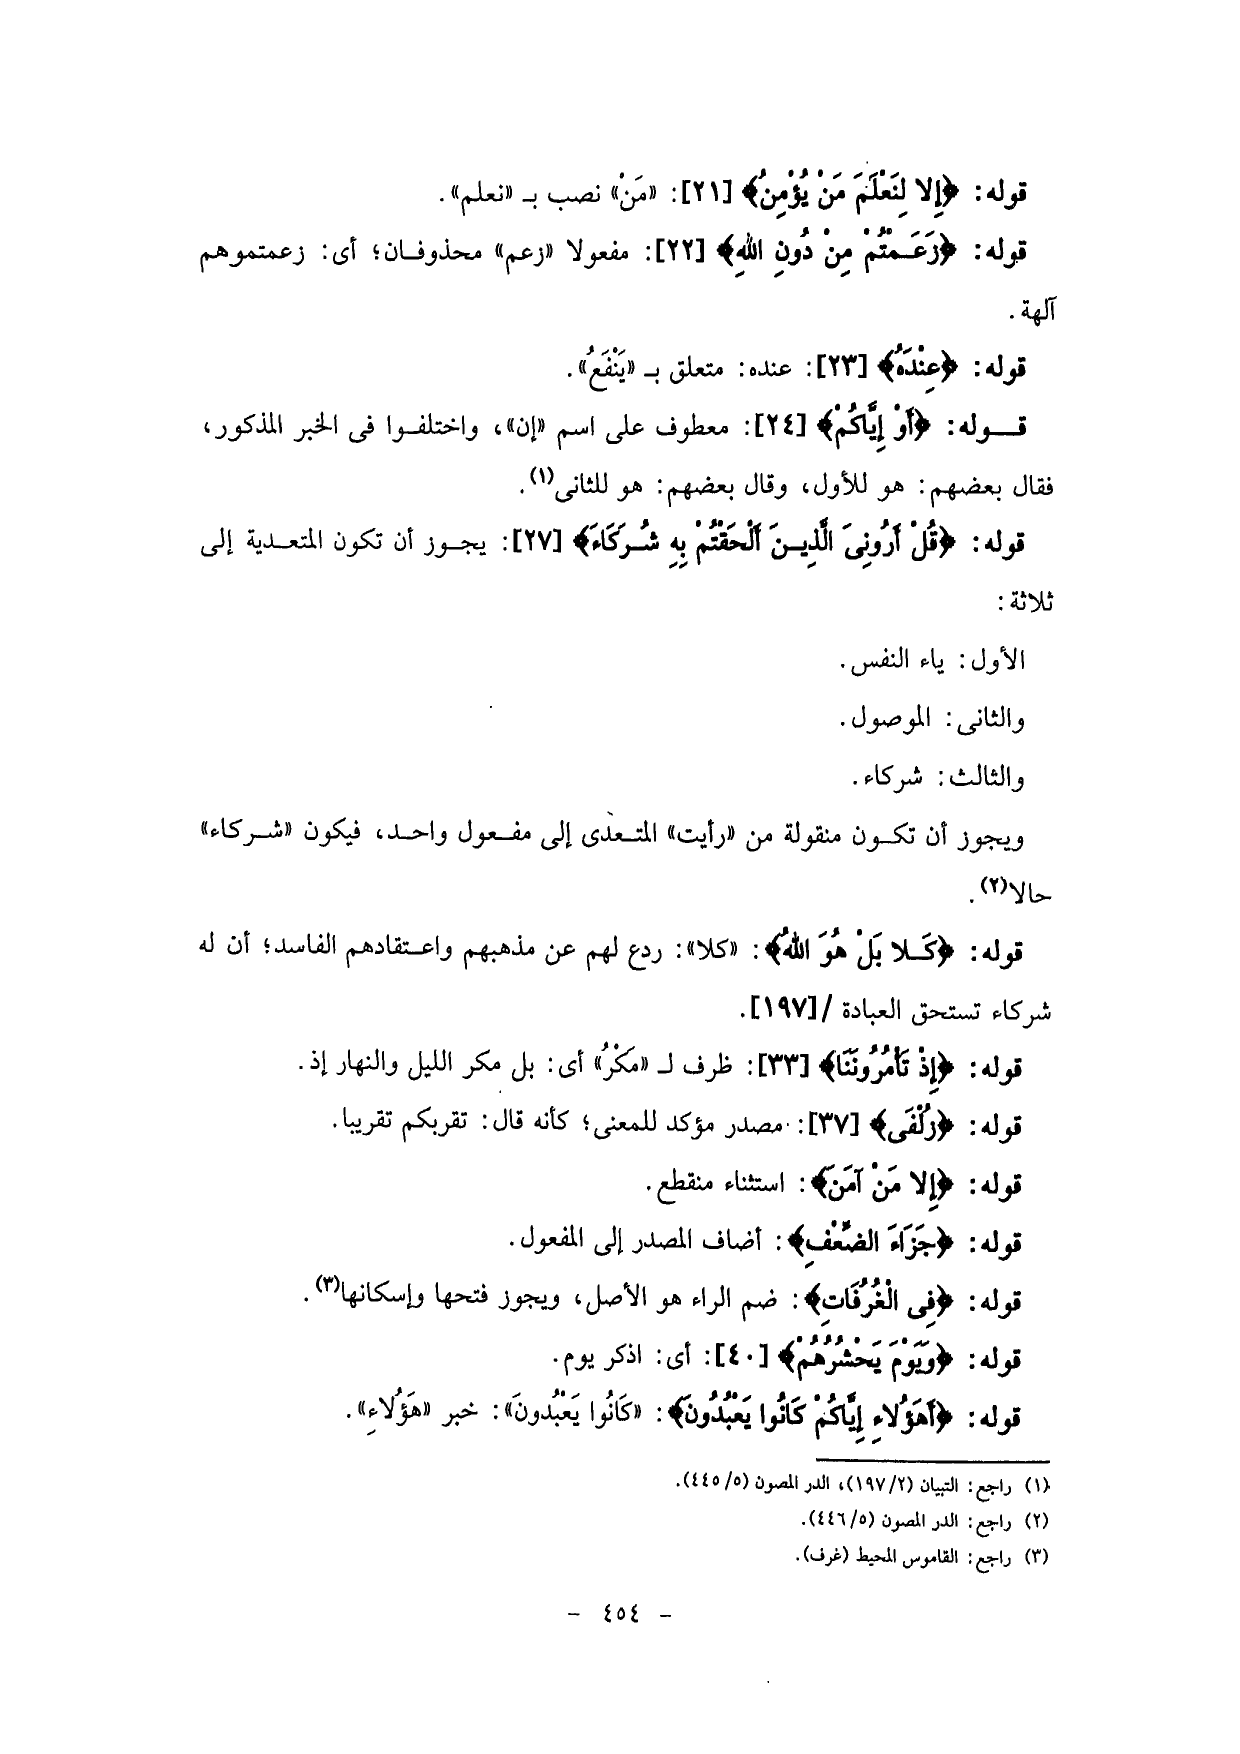 قوله: ﴿إِلا لِنَعْلَمَ مَنْ يُؤْمِنُ﴾ [٢١]: «مَنْ» نصب بـ «نعلم».
قوله: ﴿زَعَـمْتُمْ مِنْ دُونِ اللهِ﴾ [٢٢]: مفعولا «زعم» محذوفـان؛ أى: زعمتموهم
آلهة.
قوله: ﴿عِنْدَهُ﴾ [٢٣]: عنده: متعلق بـ «يَنْفَعُ».
قـــوله: ﴿أَوْ إِيَّاكُمْ﴾ [٢٤]: معطوف على اسم «إن»، واختلفـوا فى الخبر المذكور،
فقال بعضهم: هو للأول، وقال بعضهم: هو للثانى(١).
قوله: ﴿قُلْ أَرُونِىَ الَّذِيـنَ أَلْحَقْتُمْ بِهِ شُـرَكَاءَ﴾ [٢٧]: يجـوز أن تكون المتعـدية إلى
ثلاثة:
الأول: ياء النفس.
والثانى: الموصول.
والثالث: شركاء.
ويجوز أن تكـون منقولة من «رأيت» المتـعدى إلى مفـعول واحـد، فيكون «شـركاء»
حالا(٢).
قوله: ﴿كَـلا بَلْ هُوَ اللهُ﴾: «كلا»: ردع لهم عن مذهبهم واعـتقادهم الفاسد؛ أن له
شركاء تستحق العبادة /[١٩٧].
قوله: ﴿إِذْ تَأْمُرُونَنَا﴾ [٣٣]: ظرف لـ «مَكْرُ» أى: بل مكر الليل والنهار إذ.
قوله: ﴿زُلْفَى﴾ [٣٧]: مصدر مؤكد للمعنى؛ كأنه قال: تقربكم تقريبا.
قوله: ﴿إِلا مَنْ آمَنَ﴾: استثناء منقطع.
قوله: ﴿جَزَاءَ الضِّعْفِ﴾: أضاف المصدر إلى المفعول.
قوله: ﴿فِى الْغُرُفَاتِ﴾: ضم الراء هو الأصل، ويجوز فتحها وإسكانها(٣).
قوله: ﴿وَيَوْمَ يَحْشُرُهُمْ﴾ [٤٠]: أى: اذكر يوم.
قوله: ﴿أَهَؤُلاءِ إِيَّاكُمْ كَانُوا يَعْبُدُونَ﴾: «كَانُوا يَعْبُدُونَ»: خبر «هَؤُلاءِ».
(١) راجع: التبيان (١٩٧/٢)، الدر المصون (٤٤٥/٥).
(٢) راجع: الدر المصون (٤٤٦/٥).
(٣) راجع: القاموس المحيط (غرف).
- ٤٥٤ -